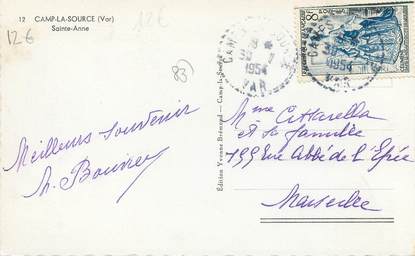 12 CAMP-LA-SOURCE (Var)
Sainte-Anne
12€
12€
83)
CAMPS LA SOURCE
1954
VAR
8F
1954
VAR
Meilleurs souvenir
Édition Yvonne Brémond - Camp-la-Source
Mme Cittarella
et sa famille
199 rue Abbé de l'Epée
Marseille